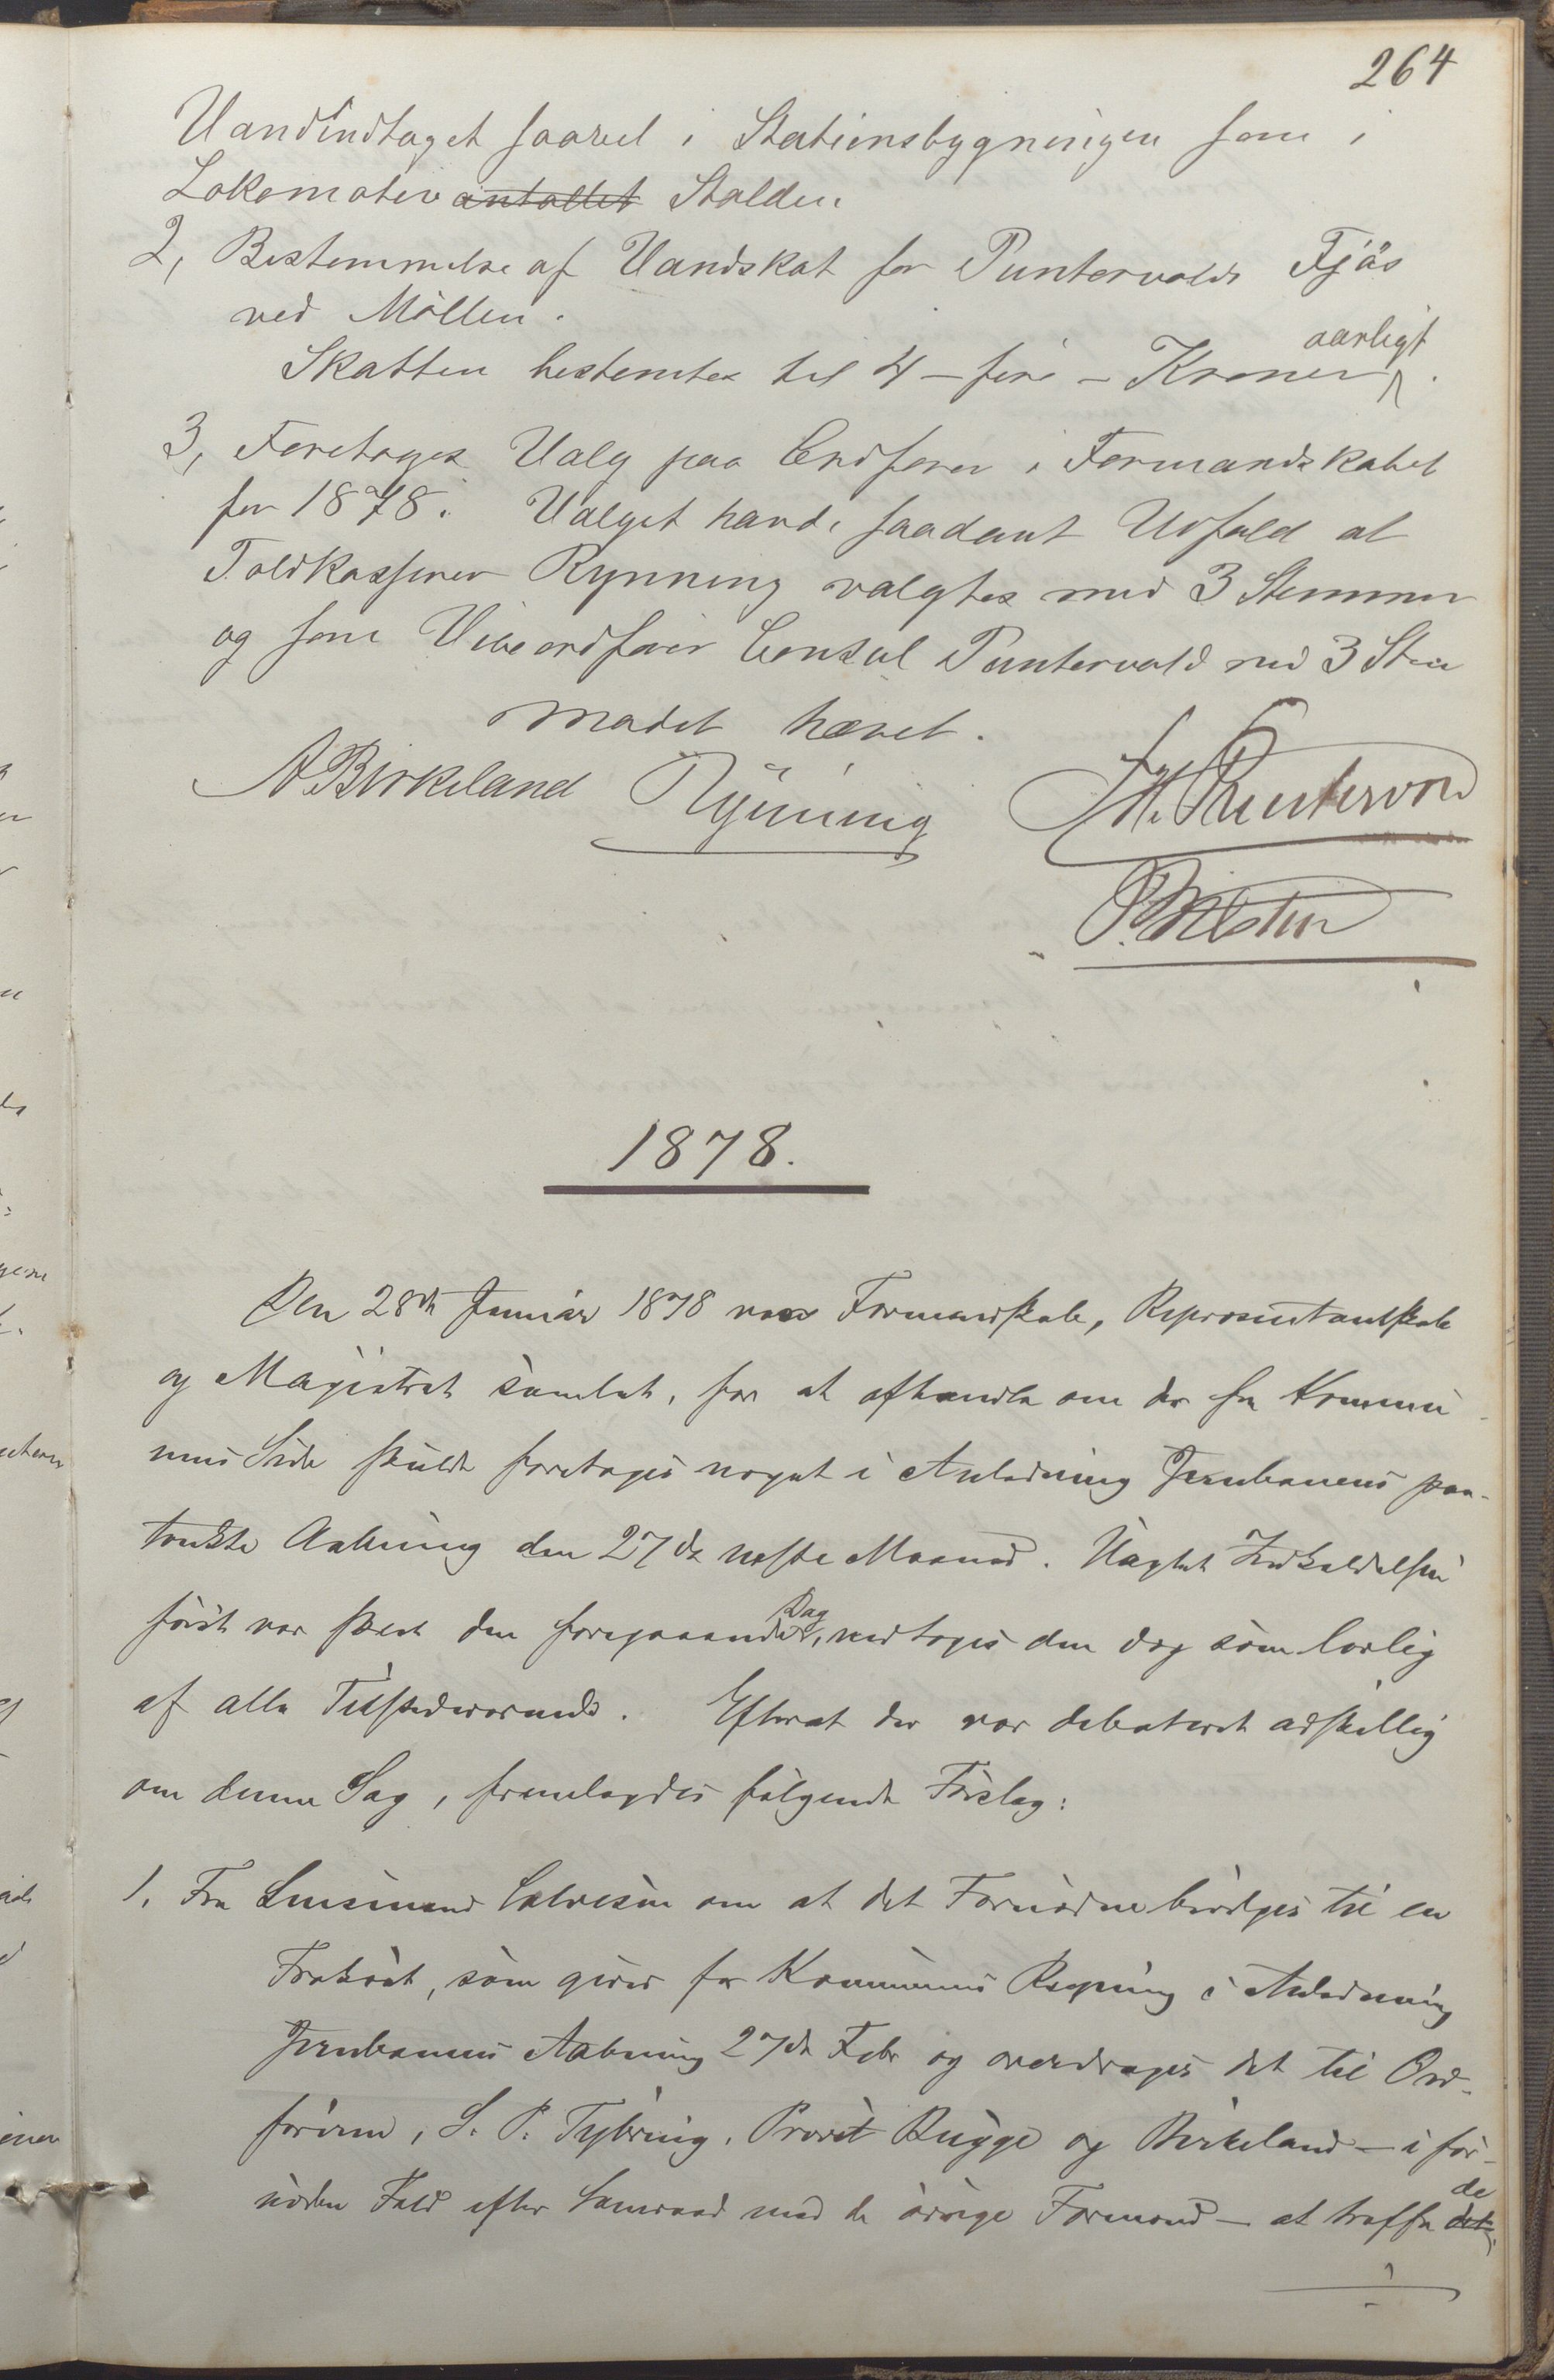 264
Vandindtaget saavel i Stationsbygningen som i
Lokomotiv antallet Stalden
2, Bestemmelse af Vandskat for Puntervolds Fjös
ved Möllen.
aarligt
Skatten bestemtes til 4 - fire - Kroner.
3, Foretoges Valg paa Ordförer i Formandskabet
for 1878. Valget havde saadant Udfald at
Toldkasserer Rynning valgtes med 3 Stemmer
og som Viceordförer Consul Puntervold med 3 Stem
Mödet hævet.
A Birkeland Rynning Puntervold
1878.
Den 28de Januar 1878 var Formandskab, Repræsentantskab
og Magistrat samlet, for at afhandle om der fra Kommu
nens Side skulde foretages noget i Anledning Jernbanens paa-
tænkte Aabning den 27de næste Maaned. Uagtet Indkaldelsen
Dag
först var skeet den foregaaende, vedtoges den dog som lovlig
af alle Tilstedeværende. Efterat der var debateret adskillig
om denne Sag, fremlagdes fölgende Forslag:
1. Fra Lensmand Salvesen om at det Fornödne besörges til en
Frokost, som gives for Kommunens Regning i Anledning
Jernbanens Aabning 27de Febr og overdrages det til Ord-
föreren, S. P. Tybring, Provst Bugge og Birkeland - i for-
de
nöden Fald efter Samraad med de övrige Formænd - at træffe det